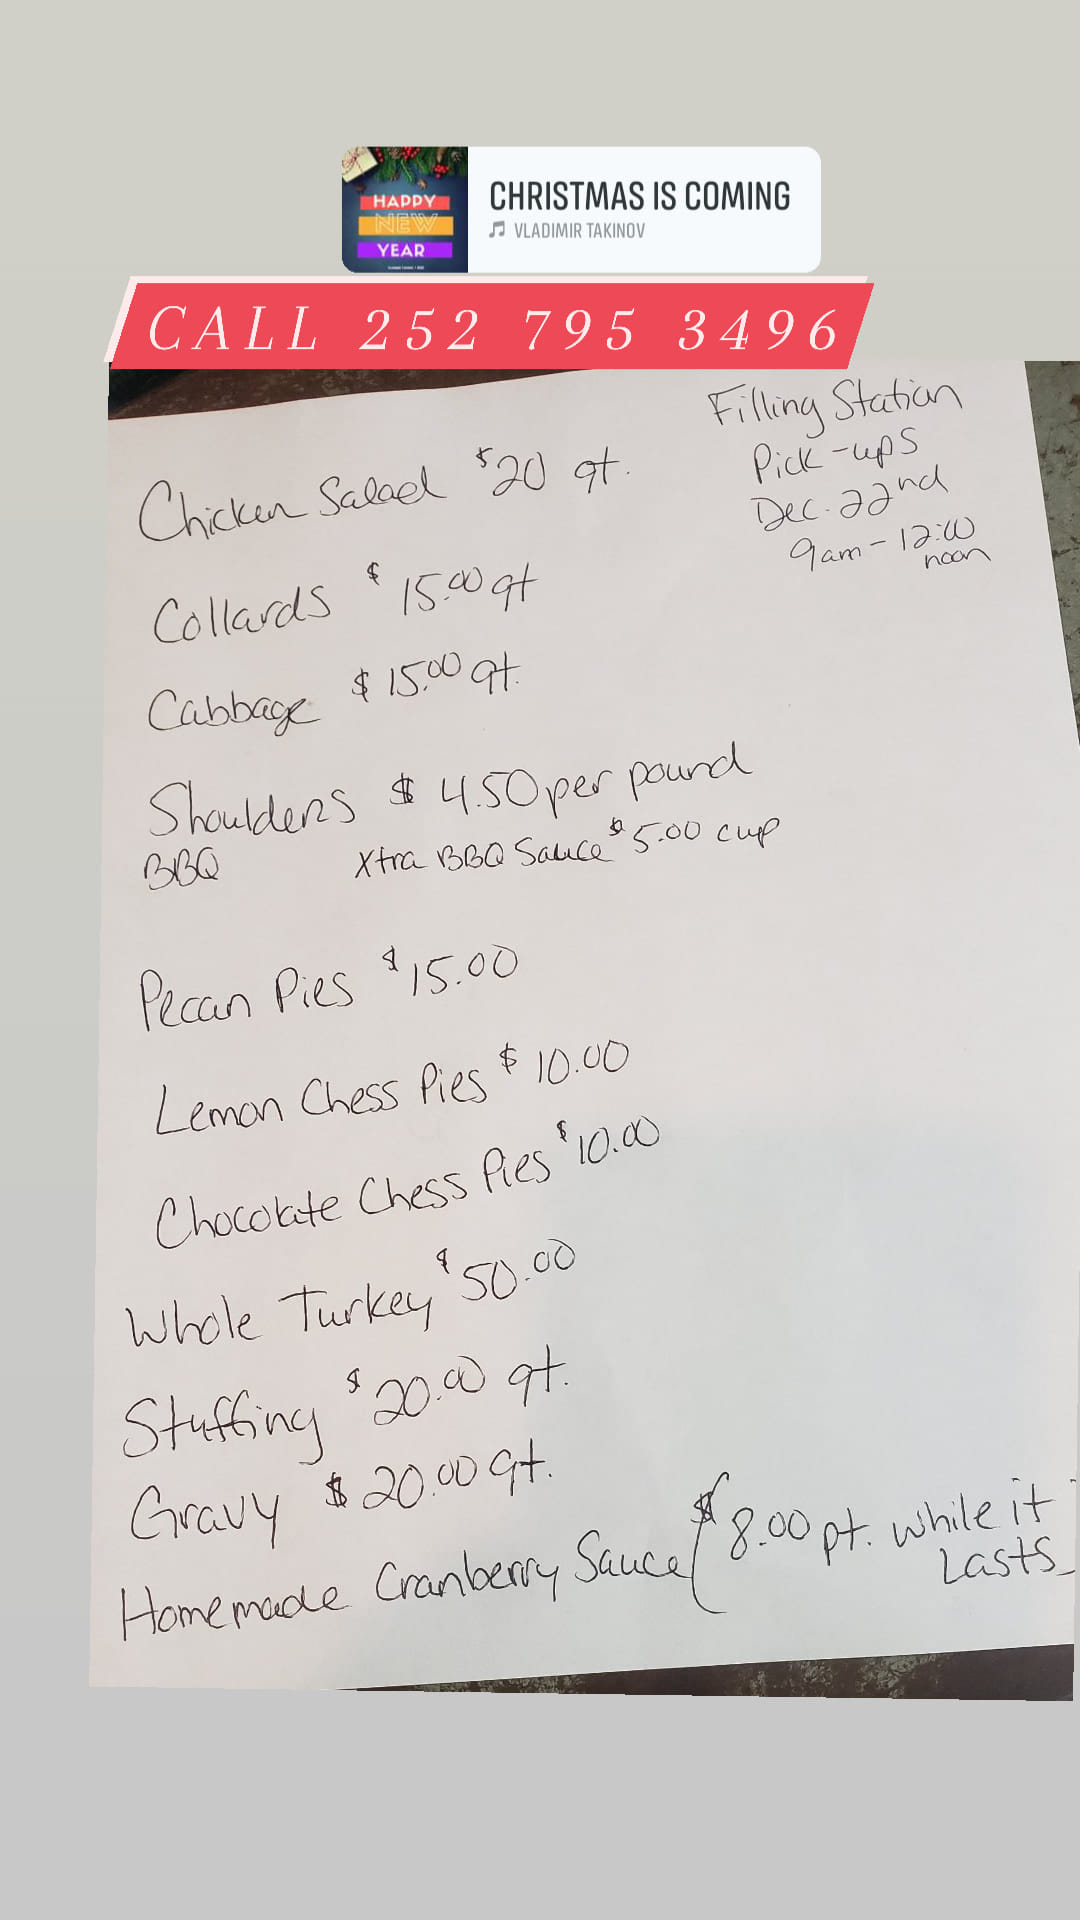 HAPPY
NEW
YEAR
CHRISTMAS IS COMING
VLADIMIR TAKINOV
CALL 252 795 3496
Filling Station
Pick-ups
Dec. 22nd
9am - 12:00
noon
Chicken Salad $20 qt.
Collards $15.00 qt
Cabbage $15.00 qt.
Shoulders $4.50 per pound
BBQ Xtra BBQ Sauce $5.00 cup
Pecan Pies $15.00
Lemon Chess Pies $10.00
Chocolate Chess Pies $10.00
Whole Turkey $50.00
Stuffing $20.00 qt.
Gravy $20.00 qt.
Homemade Cranberry Sauce ( $8.00 pt. while it
Lasts